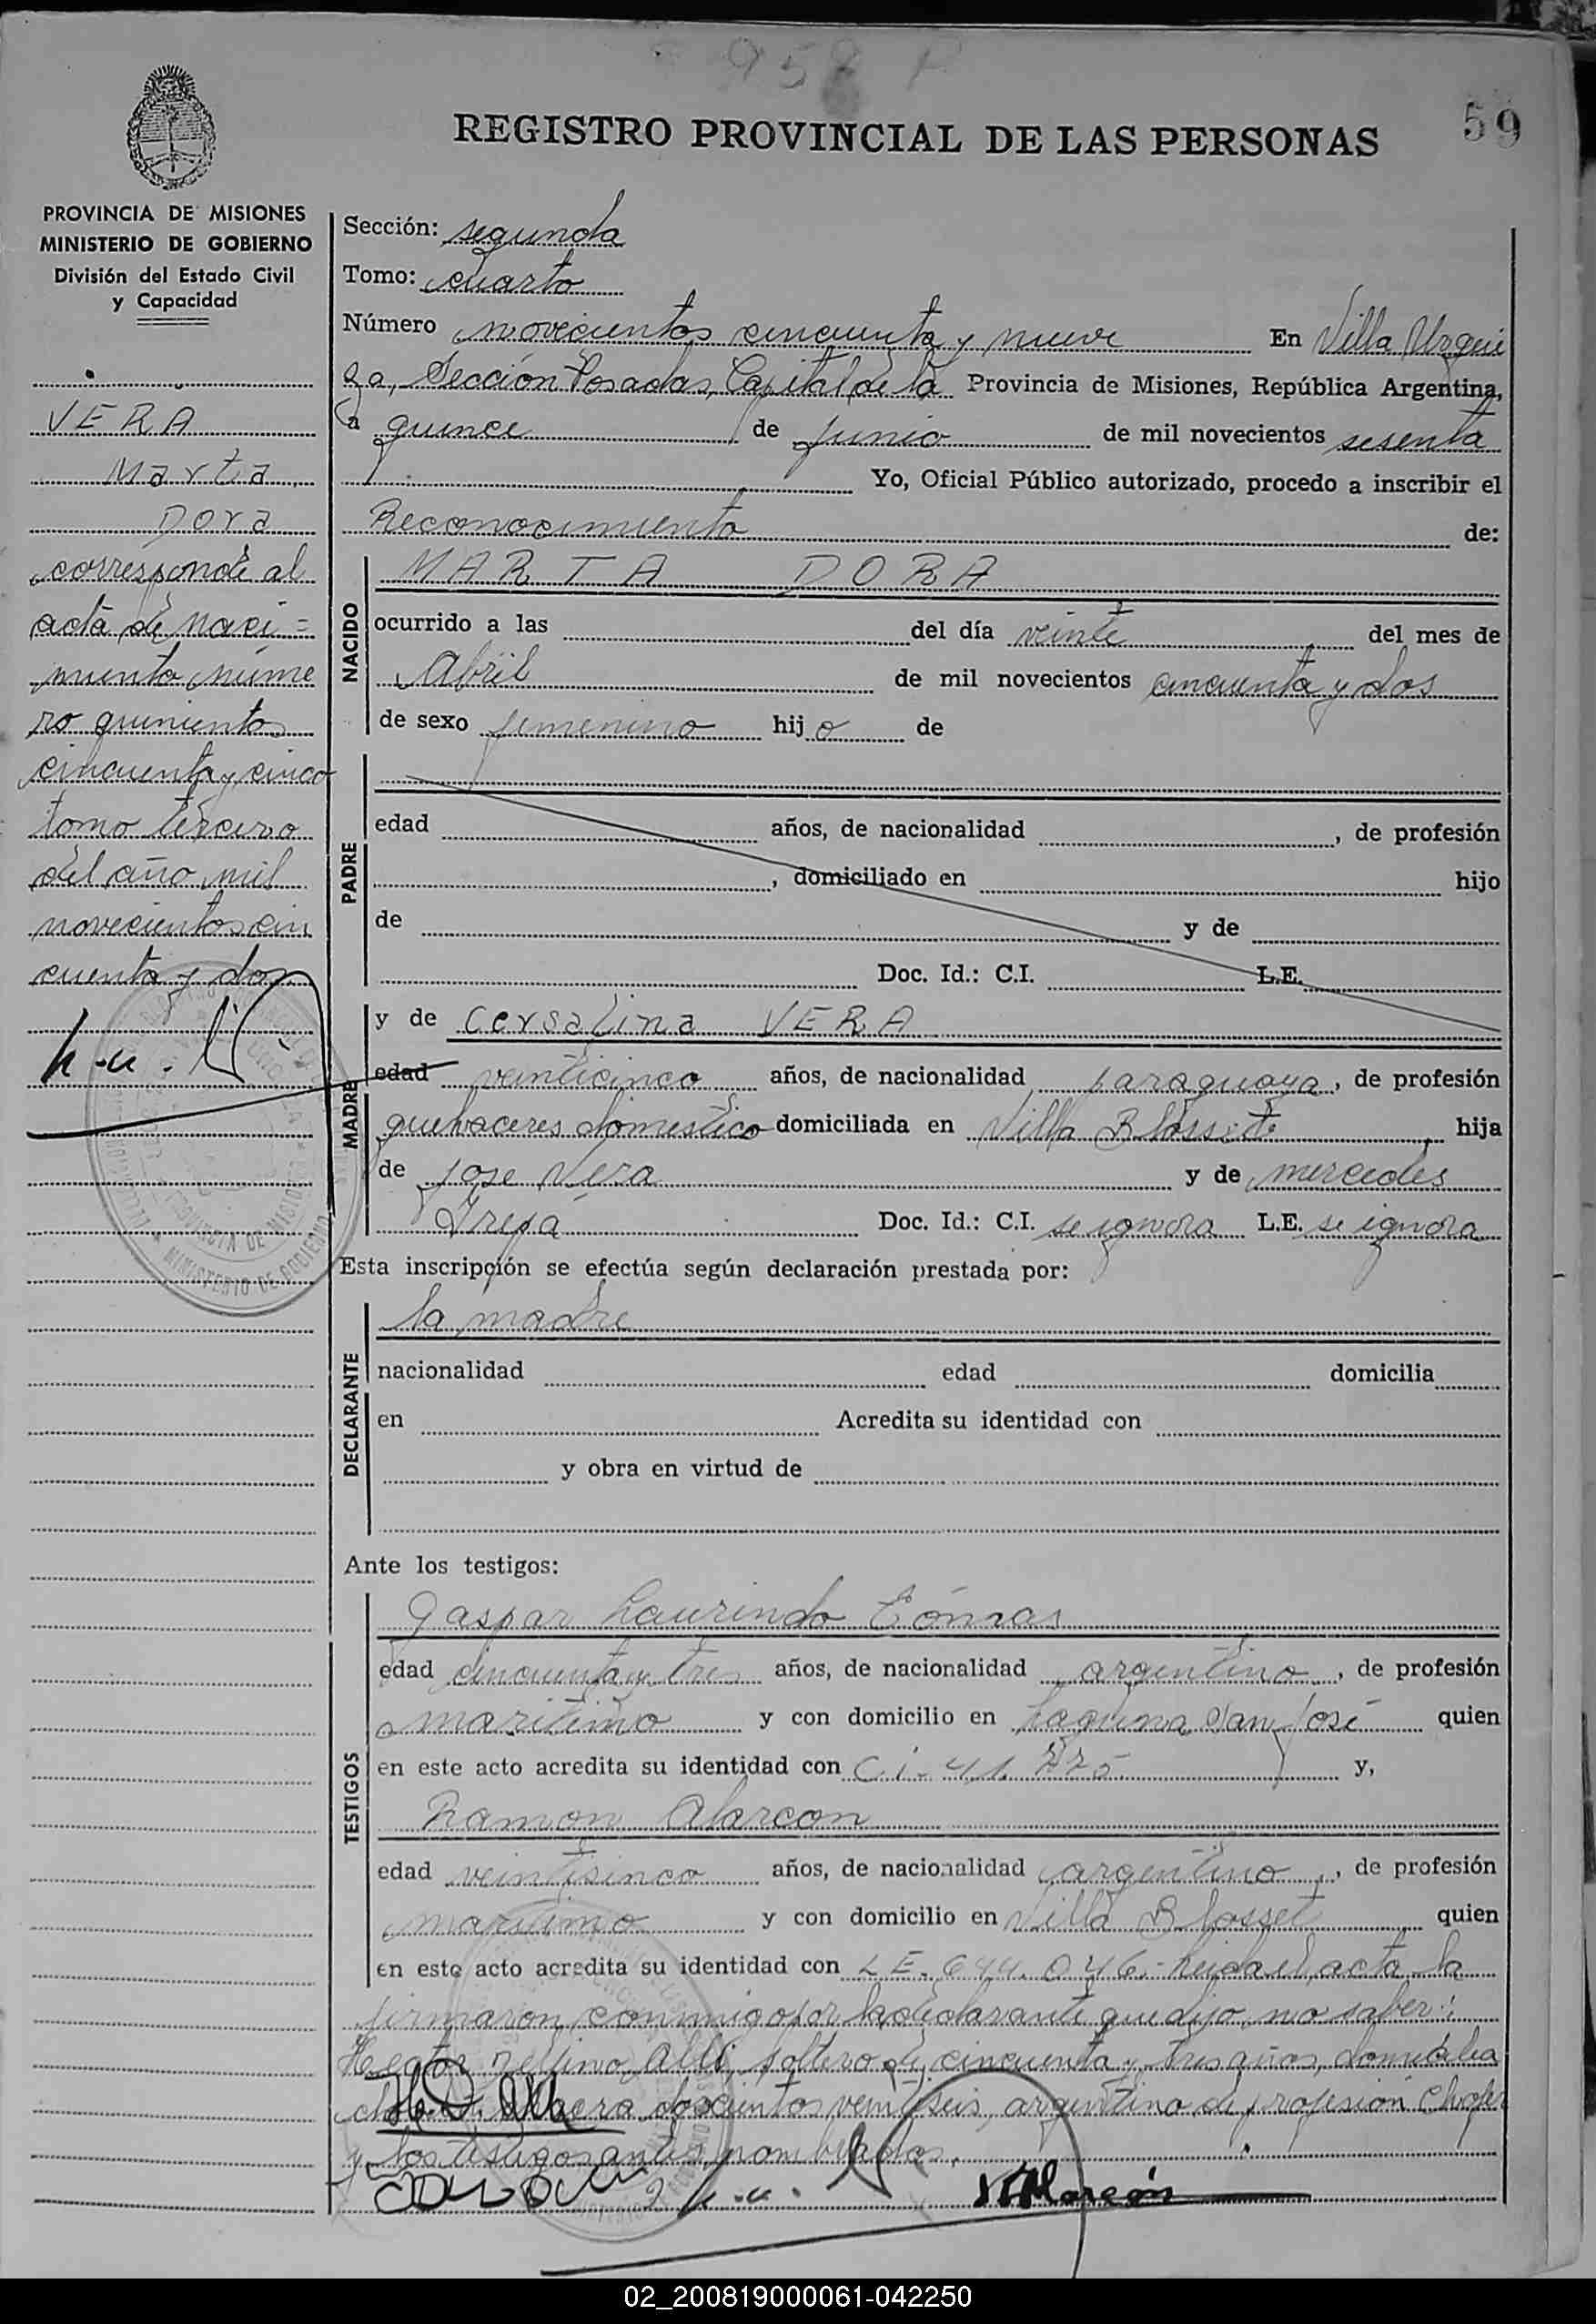 958
59
REGISTRO PROVINCIAL DE LAS PERSONAS
PROVINCIA DE MISIONES
MINISTERIO DE GOBIERNO
División del Estado Civil
y Capacidad
VERA
Marta
Dora
corresponde al
acta de naci=
miento núme
ro quinientos
cincuenta y cinco
tomo tercero
del año mil
novecientos cin
cuenta y dos
Sección: segunda
Tomo: cuarto
Número novecientos cincuenta y nueve En Villa Urqui
za, Sección Posadas, Capital de la Provincia de Misiones, República Argentina,
a quince de junio de mil novecientos sesenta
Yo, Oficial Público autorizado, procedo a inscribir el
Reconocimiento de:
NACIDO
MARTA DORA
ocurrido a las del día veinte del mes de
Abril de mil novecientos cincuenta y dos
de sexo femenino hijo de
PADRE
edad años, de nacionalidad , de profesión
, domiciliado en hijo
de y de
Doc. Id.: C.I. L.E.
MADRE
y de Cersalina VERA
edad veinticinco años, de nacionalidad paraguaya, de profesión
quehaceres domestico domiciliada en Villa Blosset, hija
de Jose Vera y de mercedes
Doc. Id.: C.I. se ignora L.E. se ignora
Esta inscripción se efectúa según declaración prestada por:
DECLARANTE
la madre
nacionalidad edad domicilia
en Acredita su identidad con
y obra en virtud de
Ante los testigos:
TESTIGOS
Gaspar Laurindo
edad cincuenta y tres años, de nacionalidad argentino, de profesión
maritimo y con domicilio en Laguna San José quien
en este acto acredita su identidad con C.i. 41. y,
Ramon Alarcon
edad veintisinco años, de nacionalidad argentino, de profesión
maritimo y con domicilio en Villa Blosset quien
en este acto acredita su identidad con L E. 644.046.- Leida el acta la
firmaron conmigo por la declarante que dijo no saber:
Hector soltero de cincuenta y tres años, domicilia
doscientos veintiseis, argentino de profesión Chofer
y los testigos antes nombrados.
02_200819000061-042250